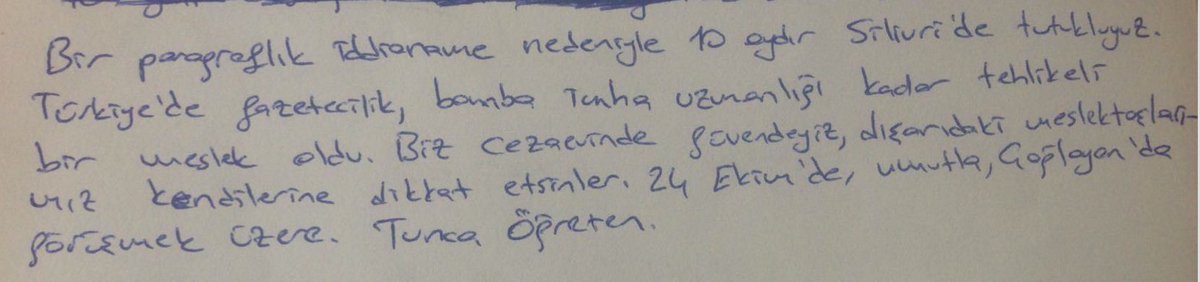 Bir paragraflık iddianame nedeniyle 10 aydır Silivri'de tutukluyuz.
Türkiye'de gazetecilik, bomba imha uzmanlığı kadar tehlikeli
bir meslek oldu. Biz cezaevinde güvendeyiz, dışarıdaki meslektaşları-
mız kendilerine dikkat etsinler. 24 Ekim'de, umutla, Çağlayan'da
görüşmek üzere. Tunca Öğreten.